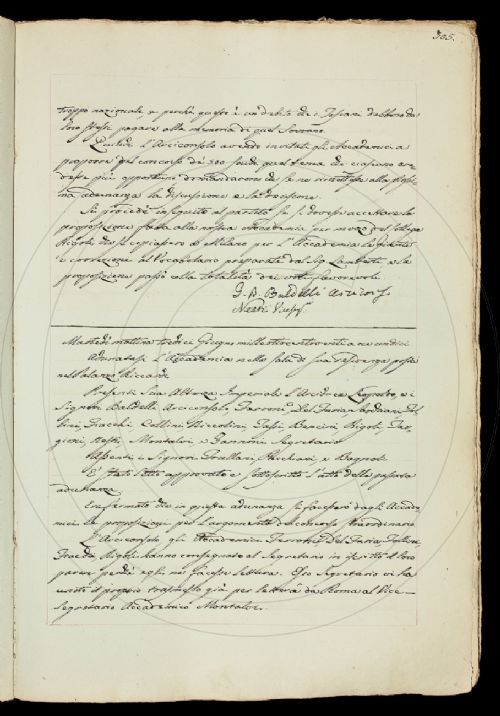 305.
troppo nazionale, e perchè questo è un debito dei Toscani da
loro stessi pagare alla memoria di quel Sovrano.
L'Arciconsolo avendo invitati gli Accademici a
proporre pel concorso di 300 scudi quel tema che ciascuno cre-
desse più opportuno domandarono che se ne rimettesse alla prossi-
ma adunanza la discussione e la decisione.
Si procedè in seguito al partito se si dovesse accettare la
proposizione fatta alla nostra Accademia per mezzo del Collega
Rigoli di di Milano per l'Accademia le giunte
e correzioni al Vocabolario preparate dal Sig. Lamberti, e la
proposizione passò colla totalità dei voti favorevole.
G. B. Baldelli
Martedì mattina tredici Giugno mille ottocento venti a ore undici
Adunatasi l'Accademia nella sala di sua residenza posta
nel Palazzo Riccardi
Presenti Sua Altezza Imperiale l'Arciduca Leopoldo, e i
Signori Baldelli Arciconsolo, Ferroni, Del Furia, Fol-
lini, Fiacchi, Collini, Niccolini, Sarchiani, Bencini, Rigoli, Pog-
gi, Nesti, Montalvi, e Zannoni Segretario
Assenti i Signori e Bagnoli
È stato letto approvato e sottoscritto l'atto della passata
adunanza.
Era fermato che in questa adunanza si facessero dagli Accade-
mici le proposizioni per l'argomento da concorso straordinario
L'Arciconsolo gli Accademici Ferroni, Del Furia, Follini
Fiacchi, Rigoli hanno consegnato al Segretario in iscritto il loro
parere perchè egli ne facesse lettura. Esso Segretario vi ha
unito il proprio trasmesso già per lettera da Roma al Vice-
Segretario Accademico Montalvi.